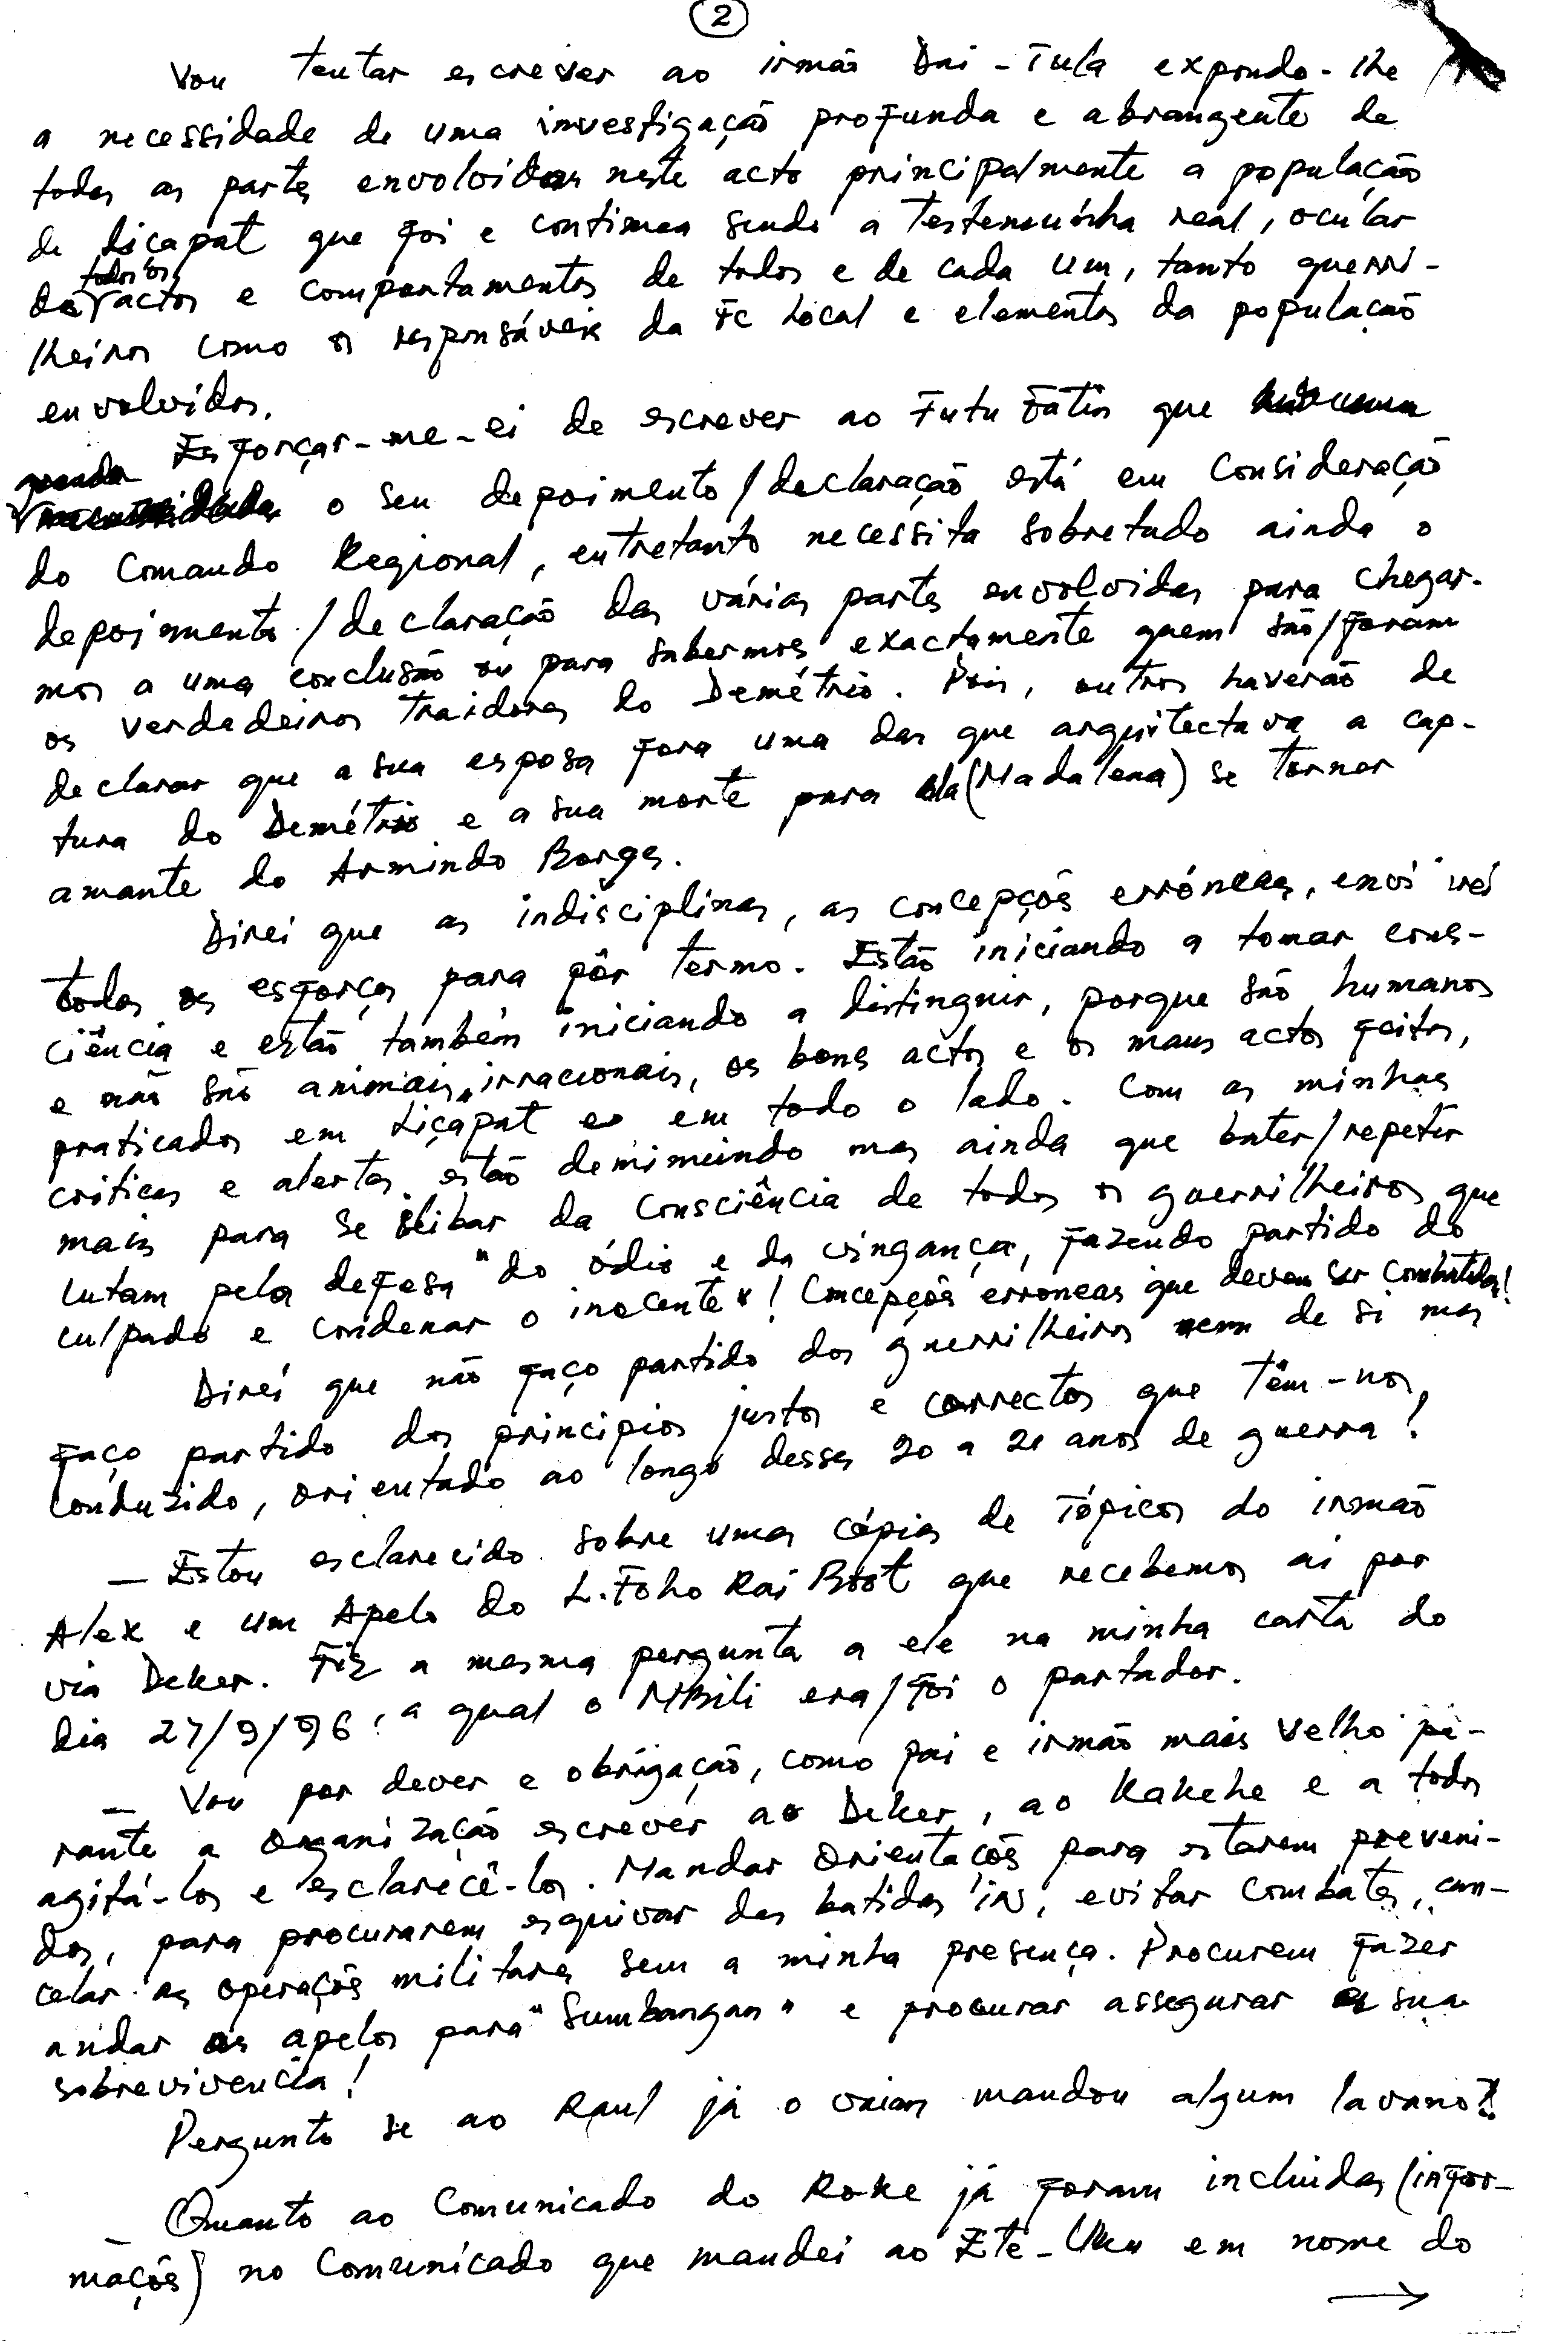 2
Vou tentar escrever ao irmão Dai-Tula expondo-lhe
a necessidade de uma investigação profunda e abrangente de
todas as partes envolvidas neste acto principalmente a população
de Liçapat que foi e continua sendo a testemunha real, ocular
de todos os factos e comportamentos de todos e de cada um, tanto guerri-
lheiros como os responsáveis da FC Local e elementos da população
envolvidos.
Esforçar-me-ei de escrever ao Futu Fatin que
o seu depoimento/declaração está em consideração
do Comando Regional, entretanto necessita sobretudo ainda o
depoimento/declaração das várias partes envolvidas para chegar-
mos a uma conclusão ou para sabermos exactamente quem são/foram
os verdadeiros traidores do Demétrio. Pois, outros haverão de
declarar que a sua esposa fora uma das que arquitectava a cap-
tura do Demétrio e a sua morte para ela (Madalena) se tornar
amante do Armindo Borges.
Direi que as indisciplinas, as concepções erróneas, envi
todos os esforços para pôr termo. Estão iniciando a tomar cons-
ciência e estão também iniciando a distinguir, porque são humanos
e não são animais irracionais, os bons actos e os maus actos feitos,
praticados em Liçapat e em todo o lado. Com as minhas
críticas e alertas estão demimuindo mas ainda que bater/repetir
mais para se ilibar da consciência de todos os guerrilheiros que
lutam pela defesa "do ódio e da vingança, fazendo partido do
culpado e condenar o inocente"! Concepções erroneas que devem ser combatidas!
Direi que não faço partido dos guerrilheiros nem de si mas
faço partido dos principios justos e correctos que têm-nos,
conduzido, orientado ao longo desses 20 a 21 anos de guerra!
— Estou esclarecido sobre umas cópias de Tópicos do irmão
Alex e um Apelo do L. Foho Rai Boot que recebemos ai por
via Deker. Fiz a mesma pergunta a ele na minha carta do
dia 27/9/96, a qual o MBili era/foi o portador.
— Vou por dever e obrigação, como pai e irmão mais velho pe-
rante a organização escrever ao Deker, ao Kakehe e a todos
agitá-los e esclarecê-los. Mandar orientações para estarem preveni-
dos, para procurarem esquivar das batidas in, evitar combates, can-
celar as operações militares sem a minha presença. Procurem fazer
andar os apelos para "Sumbangan" e procurar assegurar a sua
sobrevivencia!
Pergunto se ao Raul já o mandou algum
Quanto ao Comunicado do Roke já foram incluidas (infor-
mações) no Comunicado que mandei ao Ete-Uku em nome do
→